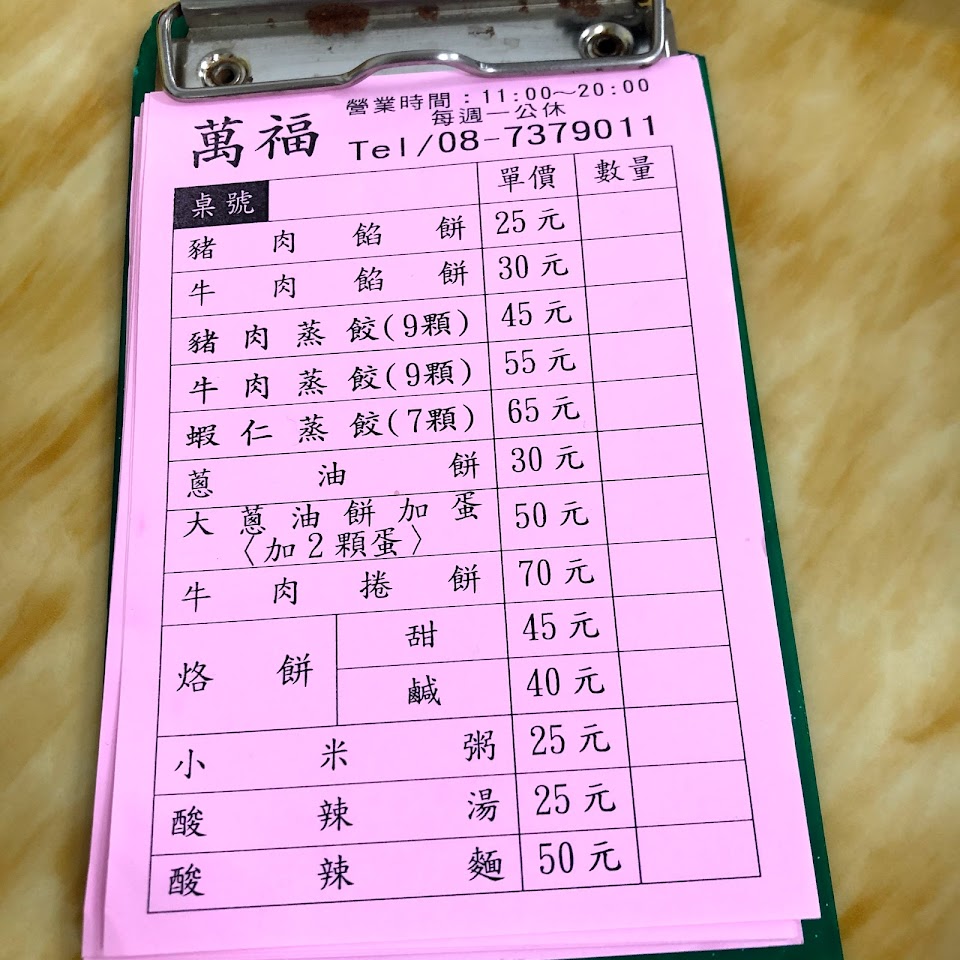 萬福
營業時間：11:00~20:00
每週一公休
Tel/08-7379011
桌號 單價 數量
豬肉餡餅 25元
牛肉餡餅 30元
豬肉蒸餃(9顆) 45元
牛肉蒸餃(9顆) 55元
蝦仁蒸餃(7顆) 65元
蔥油餅 30元
大蔥油餅加蛋
〈加2顆蛋〉 50元
牛肉捲餅 70元
烙餅 甜 45元
鹹 40元
小米粥 25元
酸辣湯 25元
酸辣麵 50元